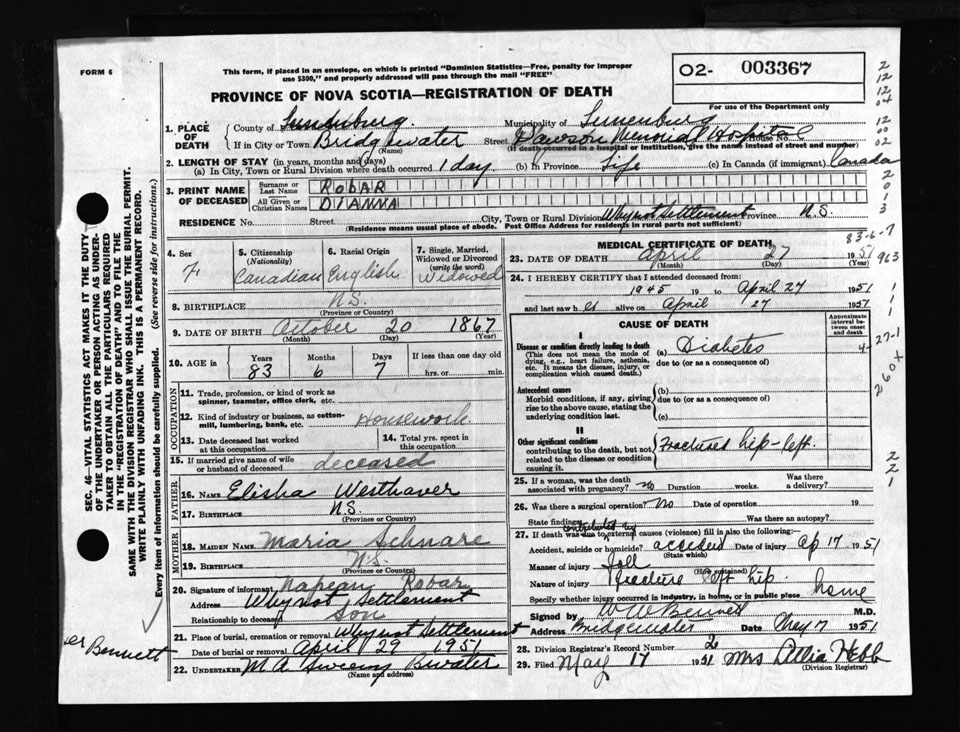 FORM 6
This form, if placed in an envelope, on which is printed "Dominion Statistics—Free, penalty for improper
use $300," and properly addressed will pass through the mail "FREE"
PROVINCE OF NOVA SCOTIA—REGISTRATION OF DEATH
02- 003367
For use of the Department only
1. PLACE OF DEATH
County of Lunenburg Municipality of Lunenburg
If in City or Town Bridgewater (Name) Street Dawson Memorial Hospital House No.
(If death occurred in a hospital or Institution, give the name instead of street and number)
2. LENGTH OF STAY (in years, months and days)
(a) In City, Town or Rural Division where death occurred 1 day (b) In Province Life (c) In Canada (if immigrant) Canada
3. PRINT NAME OF DECEASED
Surname or Last Name ROBAR
All Given or Christian Names DIANNA
RESIDENCE No. Street City, Town or Rural Division Whynot Settlement Province N.S.
(Residence means usual place of abode. Post Office Address for residents in rural parts not sufficient)
4. Sex F
5. Citizenship (Nationality) Canadian
6. Racial Origin English
7. Single, Married, Widowed or Divorced (write the word) Widowed
8. BIRTHPLACE N.S.
(Province or Country)
9. DATE OF BIRTH October 20 1867
(Month) (Day) (Year)
10. AGE in Years 83 Months 6 Days 7 If less than one day old hrs. or min.
OCCUPATION
11. Trade, profession, or kind of work as spinner, teamster, office clerk, etc.
12. Kind of industry or business, as cotton-mill, lumbering, bank, etc. Housework
13. Date deceased last worked at this occupation
14. Total yrs. spent in this occupation
15. If married give name of wife or husband of deceased deceased
FATHER
16. NAME Elisha Westhaver
17. BIRTHPLACE N.S.
(Province or Country)
MOTHER
18. MAIDEN NAME Maria Schnare
19. BIRTHPLACE N.S.
(Province or Country)
20. Signature of informant Napean Robar
Address Whynot Settlement
Relationship to deceased Son
21. Place of burial, cremation or removal Whynot Settlement
Date of burial or removal April 29 1951
22. UNDERTAKER M A Sweeny Bwater
(Name and address)
MEDICAL CERTIFICATE OF DEATH
23. DATE OF DEATH April 27 1951
(Month) (Day) (Year)
24. I HEREBY CERTIFY that I attended deceased from:
1945 19 to April 27 1951
and last saw h er alive on April 27 1951
CAUSE OF DEATH
Approximate interval between onset and death
I
Disease or condition directly leading to death (a) Diabetes
(This does not mean the mode of dying, e.g., heart failure, asthenia, etc. It means the disease, injury, or complication which caused death.)
due to (or as a consequence of)
Antecedent causes
Morbid conditions, if any, giving rise to the above cause, stating the underlying condition last.
(b)
due to (or as a consequence of)
(c)
II
Other significant conditions
contributing to the death, but not related to the disease or condition causing it.
Fractured hip-left.
25. If a woman, was the death associated with pregnancy? no Duration weeks. Was there a delivery?
26. Was there a surgical operation? No Date of operation 19
State findings Was there an autopsy?
contributed by
27. If death was due to external causes (violence) fill in also the following:
Accident, suicide or homicide? accident Date of injury Ap 17 1951
(State which)
Manner of injury Fall
(How sustained)
Nature of injury Fracture left hip.
Specify whether injury occurred in industry, in home, or in public place home
Signed by W W Bennett M.D.
Address Bridgewater Date May 17 1951
28. Division Registrar's Record Number 2
29. Filed May 17 1951 Mrs Hebb
(Division Registrar)
SEC. 46—VITAL STATISTICS ACT MAKES IT THE DUTY
OF THE UNDERTAKER OR PERSON ACTING AS UNDER-
TAKER TO OBTAIN ALL THE PARTICULARS REQUIRED
IN THE "REGISTRATION OF DEATH" AND TO FILE THE
SAME WITH THE DIVISION REGISTRAR WHO SHALL ISSUE THE BURIAL PERMIT.
WRITE PLAINLY WITH UNFADING INK. THIS IS A PERMANENT RECORD.
Every item of information should be carefully supplied. (See reverse side for instructions.)
Bennett
2
12
12
04
12
00
02
2
0
1
3
83-6-7
963
1
1
1
27-1
260+
2
2
1